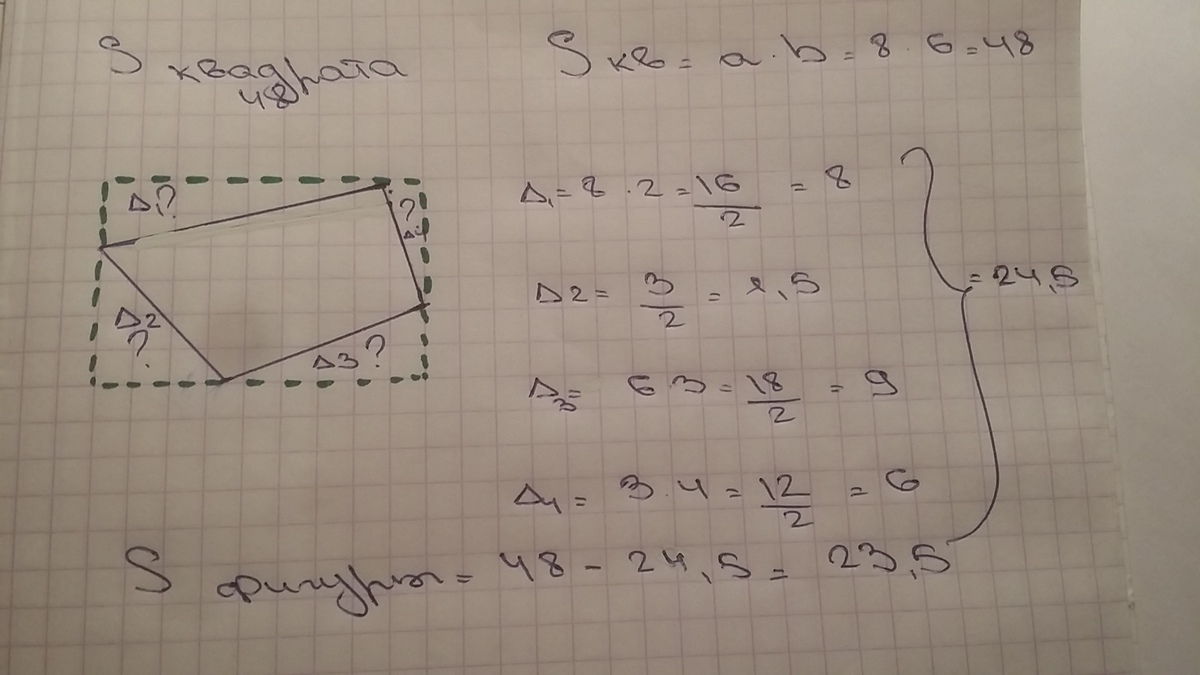 S квадрата
48
S кв = a · b = 8 · 6 = 48
Δ1?
?
Δ4
Δ2
?
Δ3?
Δ1 = 8 · 2 = 16/2 = 8
Δ2 = 3/2 = 1,5
Δ3 = 6 3 = 18/2 = 9
Δ4 = 3 · 4 = 12/2 = 6
= 24,5
S фигуры = 48 - 24,5 = 23,5